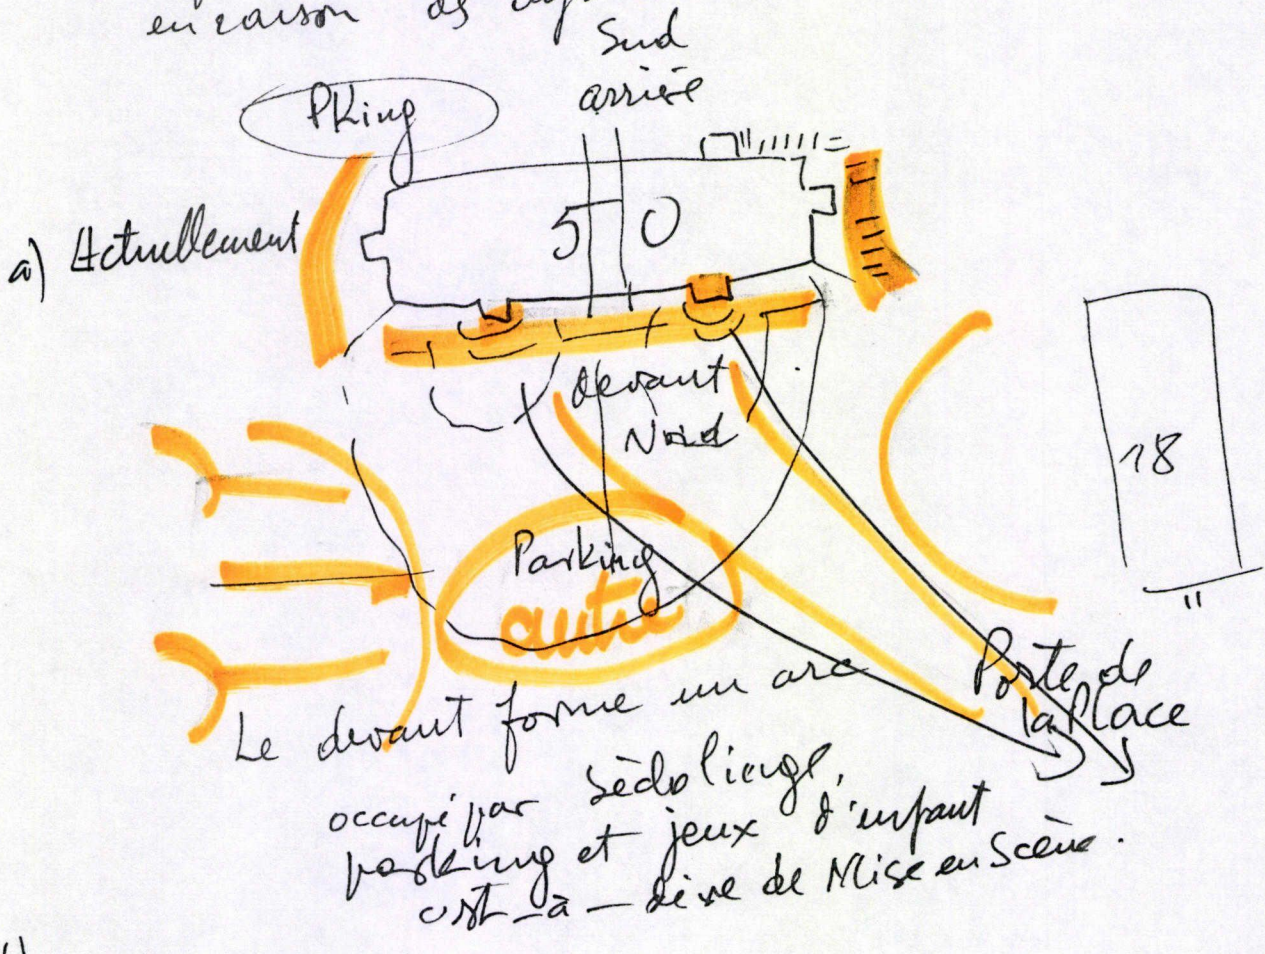 en raison de
Sud
arrière
PKing
a) Actuellement
5 0
devant
Nord
18
"
Parking
autre
Porte de
la Place
Le devant forme un arc
occupé par sèdo linge,
parking et jeux d'enfant
cst-à-dire de Mise en Scène.